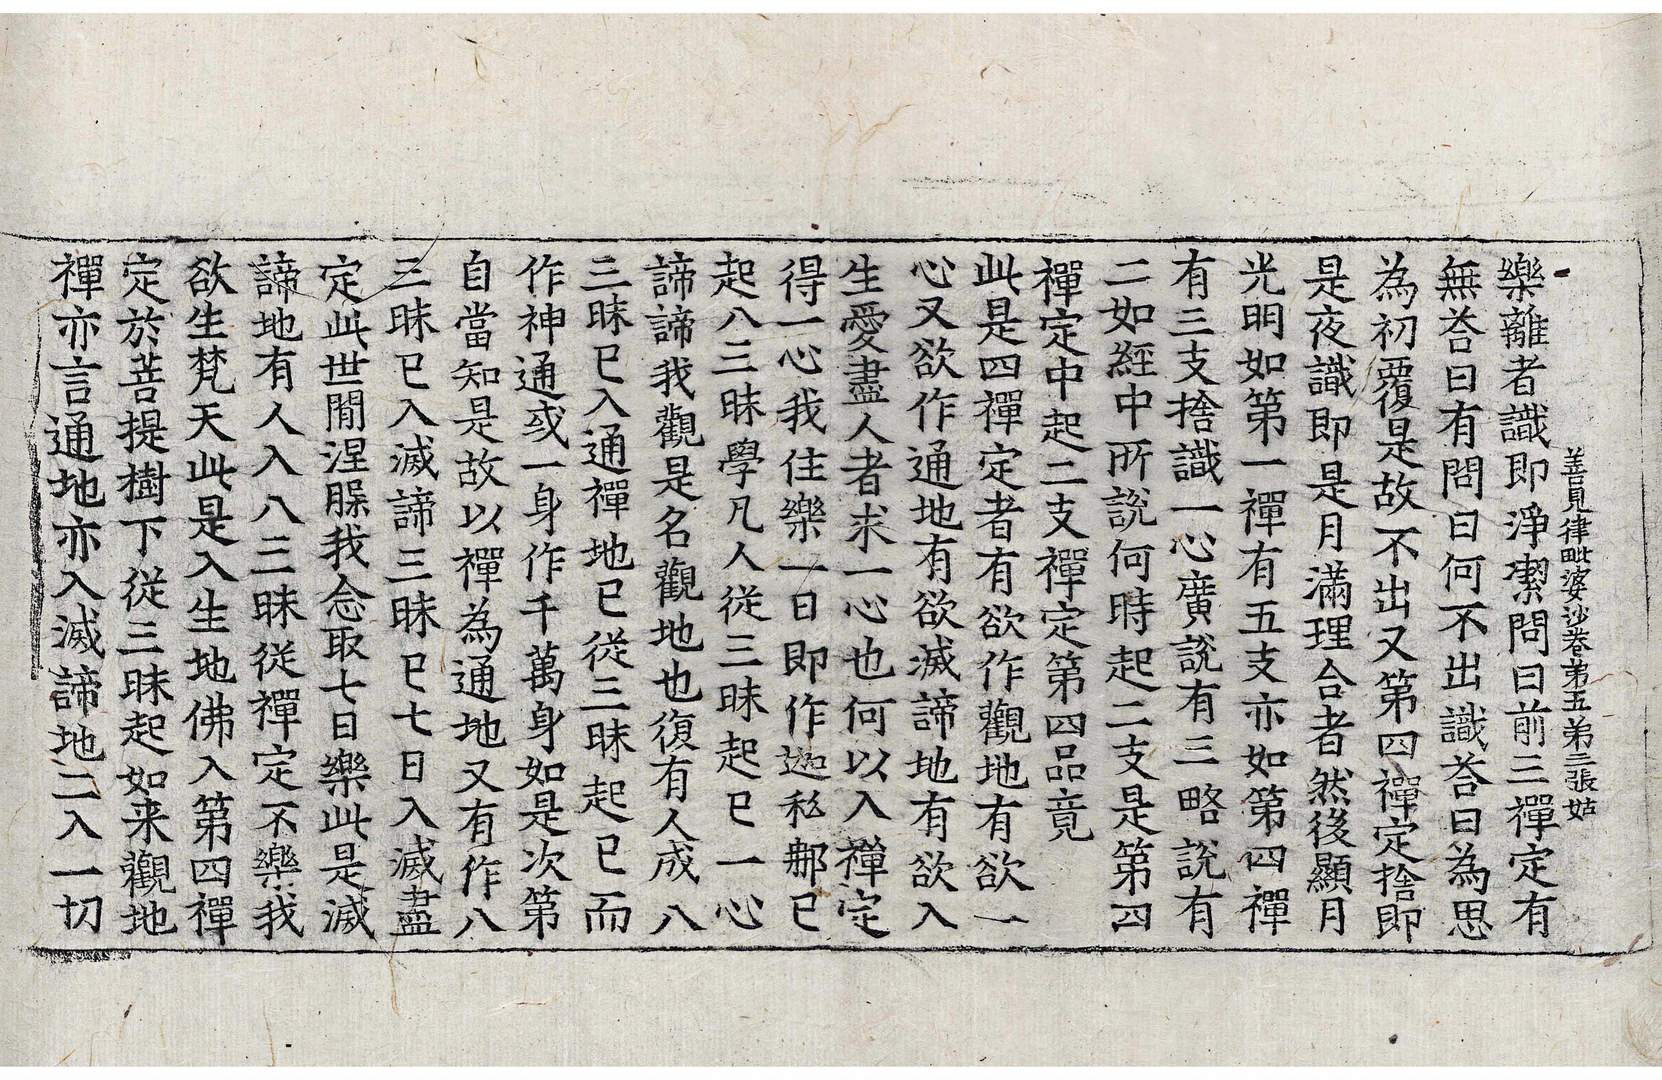 善見律毗婆沙卷第五第三張姑
樂離者識即淨潔問曰前三禪定有
無荅曰有問曰何不出識荅曰為思
為初覆是故不出又第四禪定捨即
是夜識即是月滿理合者然後顯月
光明如第一禪有五支亦如第四禪
有三支捨識一心廣說有三略說有
二如經中所說何時起二支是第四
禪定中起二支禪定第四品竟
此是四禪定者有欲作觀地有欲一
心又欲作通地有欲滅諦地有欲入
生愛盡人者求一心也何以入禪定
得一心我住樂一日即作迦私郍已
起八三昧學凡人從三昧起已一心
諦諦我觀是名觀地也復有人成八
三昧已入通禪地已從三昧起已而
作神通或一身作千萬身如是次第
自當知是故以禪為通地又有作八
三昧已入滅諦三昧已七日入滅盡
定此世閒涅脲我念取七日樂此是滅
諦地有人入八三昧從禪定不樂我
欲生梵天此是入生地佛入第四禪
定於菩提樹下從三昧起如来觀地
禪亦言通地亦入滅諦地二入一切